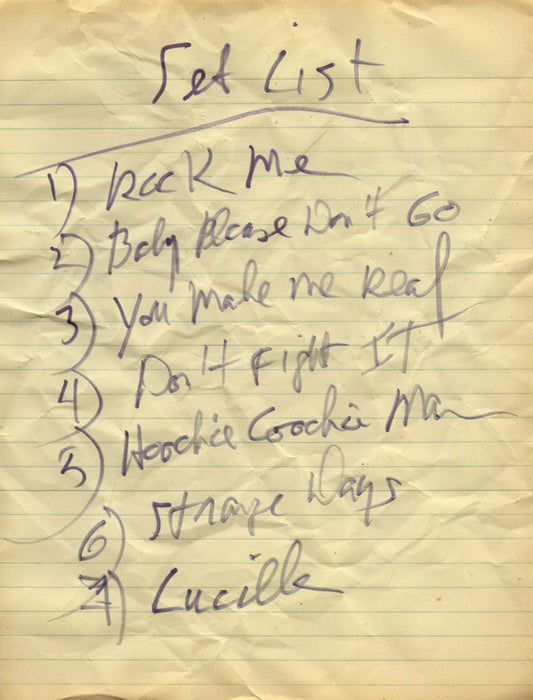 Set List
1) Rock Me
2) Baby Please Don't Go
3) You Make Me Real
4) Don't Fight IT
5) Hoochie Coochie Man
6) Strange Days
7) Lucille